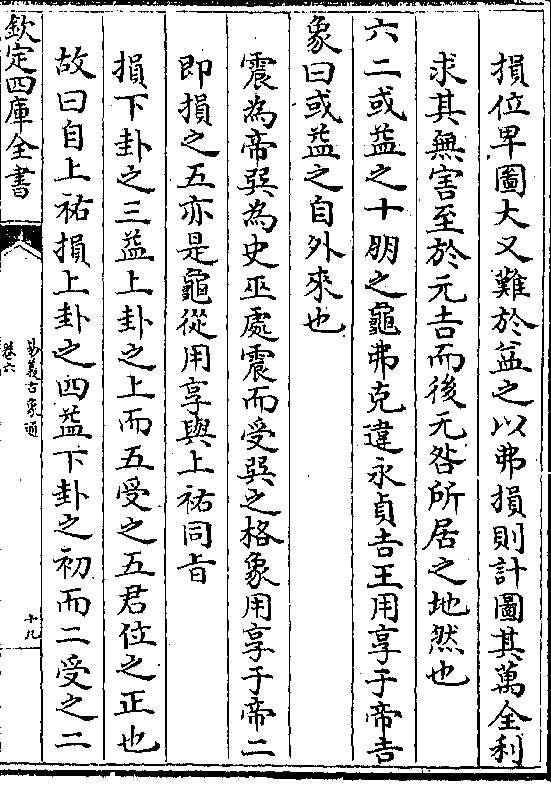 損位卑圖大又難於益之以弗損則計圖其萬全利
求其無害至於元吉而後无咎所居之地然也
六二或益之十朋之龜弗克違永貞吉王用享于帝吉
象曰或益之自外來也
震為帝巽為史巫處震而受巽之格象用享于帝二
即損之五亦是龜從用享與上祐同旨
損下卦之三益上卦之上而五受之五君位之正也
故曰自上祐損上卦之四益下卦之初而二受之二
欽定四庫全書
易義古象通
卷六
十九